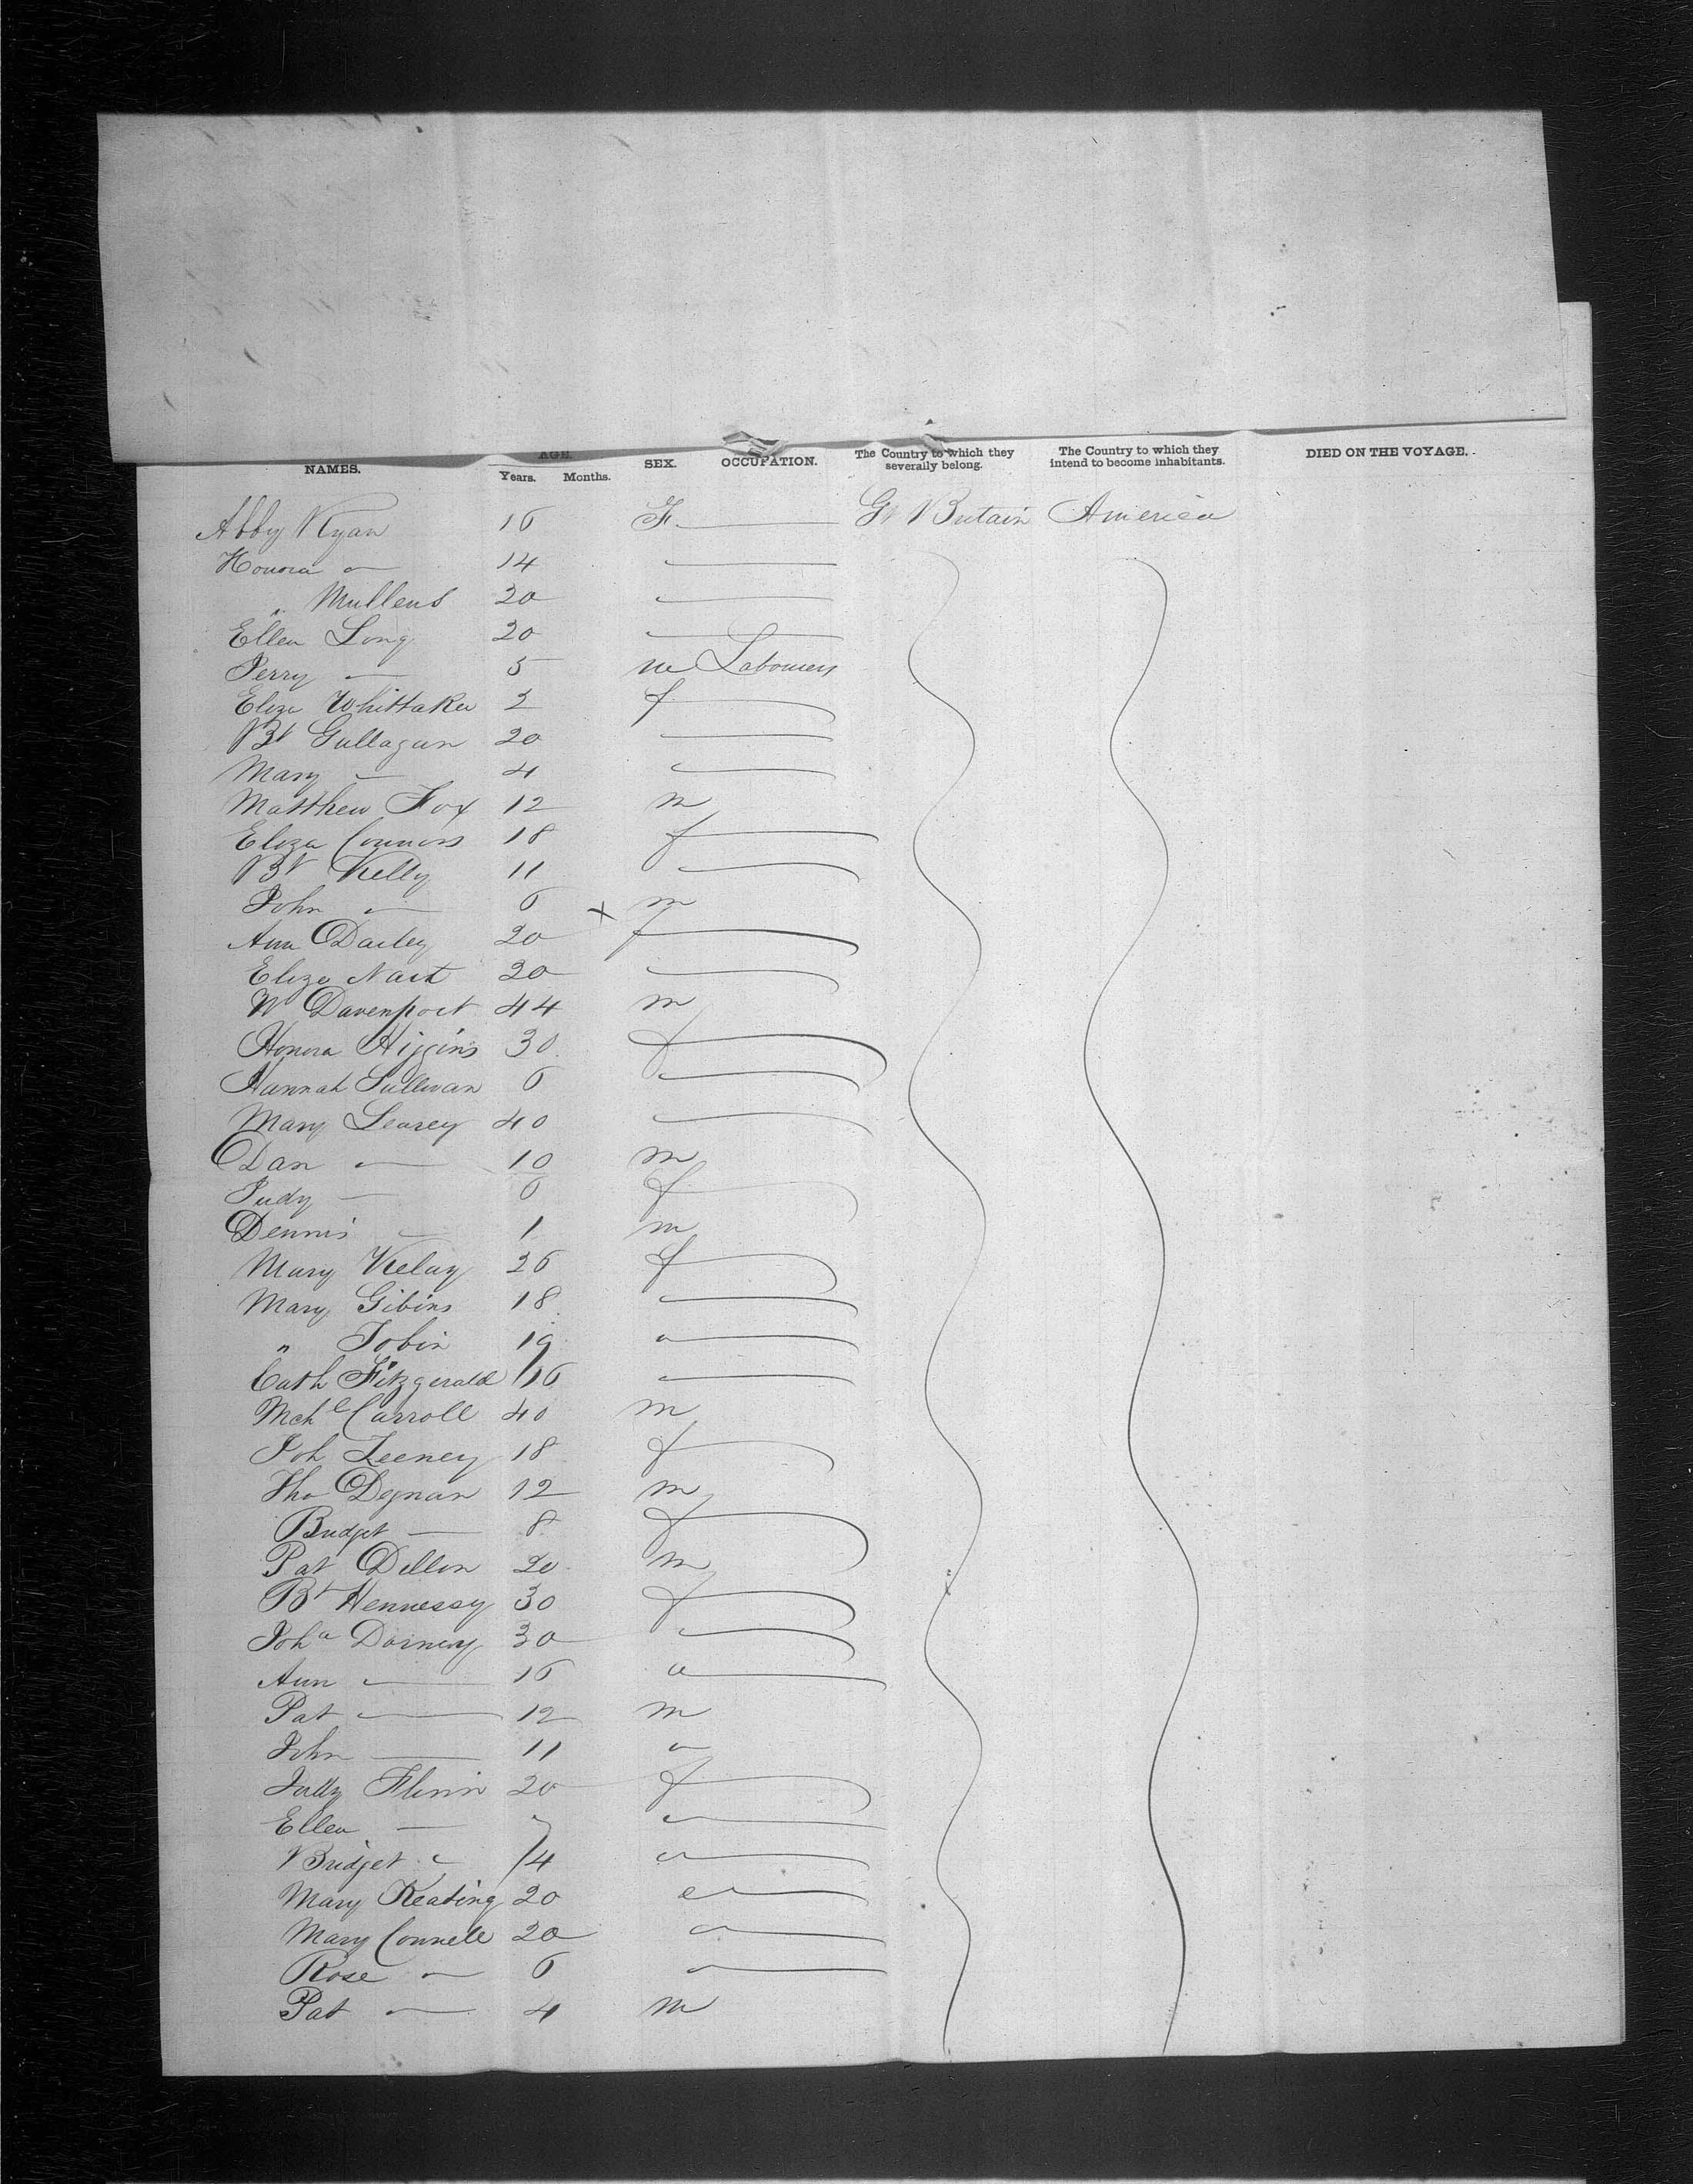 NAMES. AGE. Years. Months. SEX. OCCUPATION. The Country to which they severally belong. The Country to which they intend to become inhabitants. DIED ON THE VOYAGE.
Abby Ryan 16 F. — Gt Britain America
Honora — 14 —
" Mullens 20 —
Ellen Long 20 —
Jerry — 5 m Labourers
Eliza Whittaker 2 f —
Bt Gullagan 20 —
Mary — 4 —
Matthew Fox 12 m
Eliza Connors 18 f —
Bt Kelly 11 —
John — 6 x m
Ann Dailey 20 f —
Eliza 20 —
W Davenport 44 m
Honora Higgins 30 f —
Hannah Sullivan 6 —
Mary Learey 40 —
Dan — 10 m
Judy — 6 f
Dennis — 1 m
Mary Kelay 26 f
Mary Gibins 18 —
" Tobin 19 —
Cath Fitzgerald 16 —
Mchl Carroll 40 m
Joh Feeney 18 f
Tho Degnan 12 m
Bridget — 8 f
Pat Dillon 20 m
Bt Hennessy 30 f
Joha Dorney 30 —
Ann — 16 —
Pat — 12 m
John — 11 —
Judy Flinn 20 f
Ellen — 7 —
Bridget — 4 —
Mary Keating 20 —
Mary Connell 20 —
Rose — 6 —
Pat — 4 m